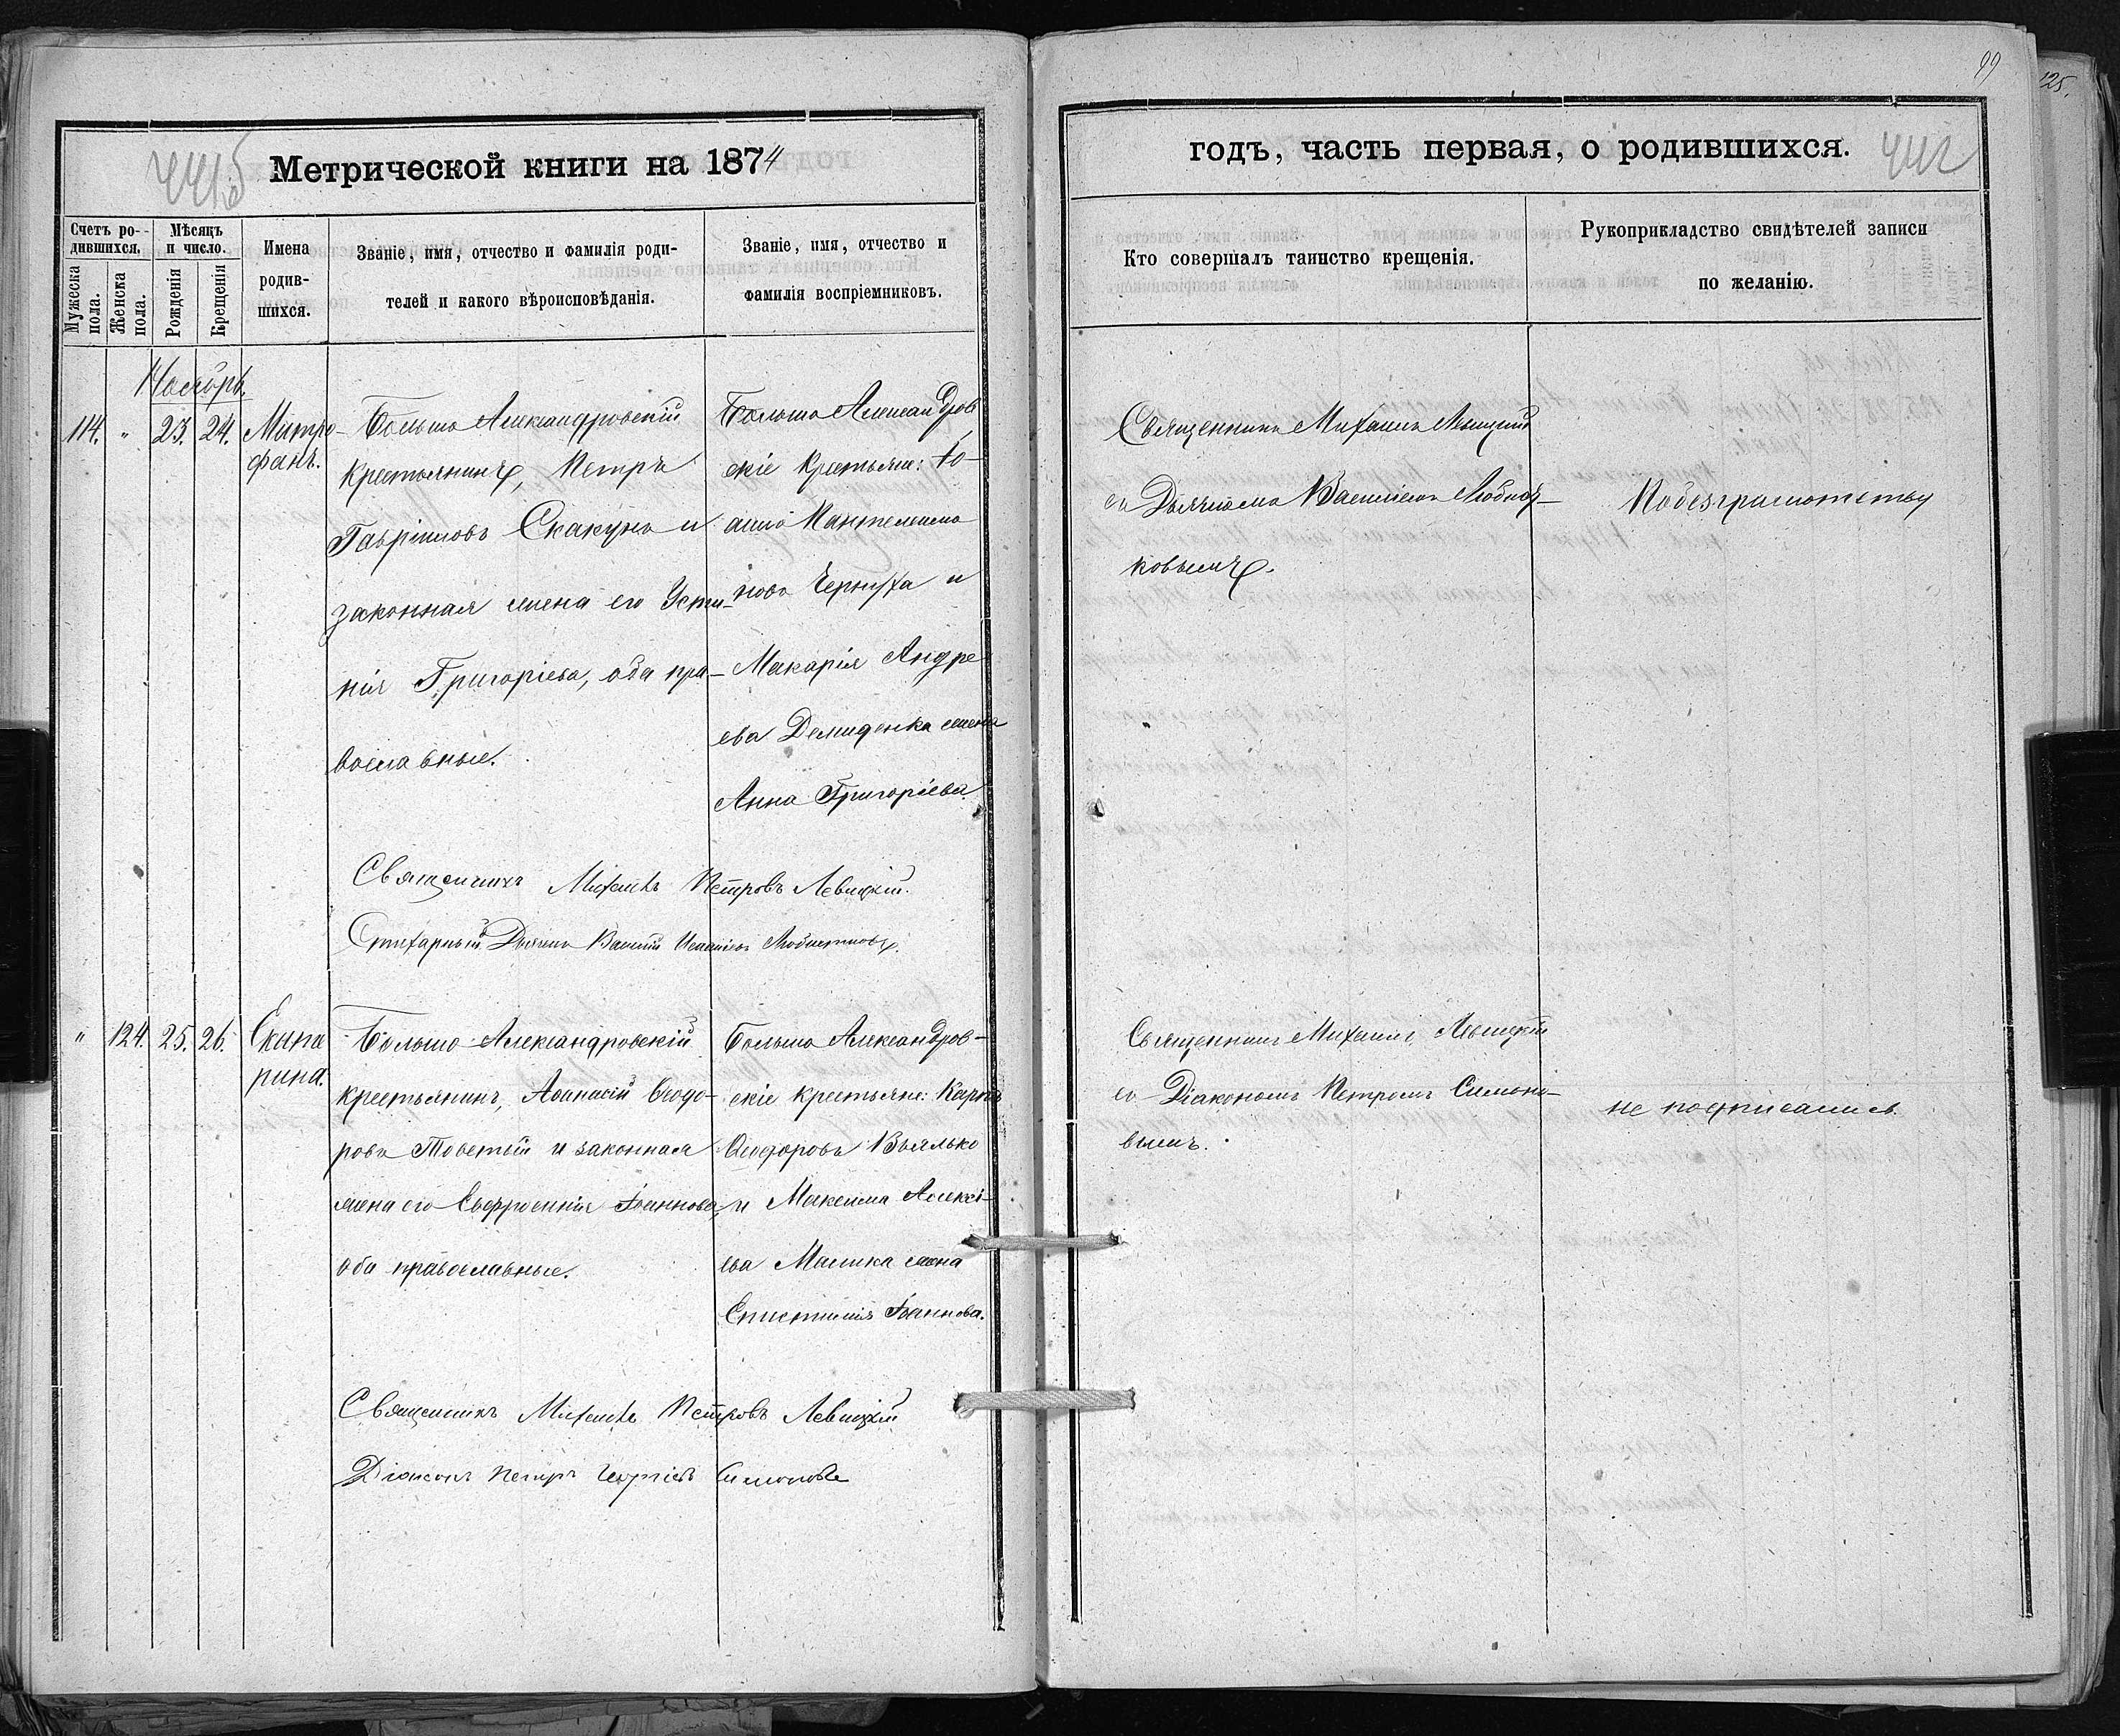 99
125.
441б
Метрической книги на 1874
годъ, часть первая, о родившихся.
442
Счетъ ро-
дившихся.
Мужеска пола.
Женска пола.
Мѣсяцъ
и число.
Рожденія
Крещенія
Имена
родив-
шихся.
Званіе, имя, отчество и фамилія роди-
телей и какого вѣроисповѣданія.
Званіе, имя, отчество и
фамилія воспріемниковъ.
Кто совершалъ таинство крещенія.
Рукоприкладство свидѣтелей записи
по желанію.
Ноябрь.
114. " 23. 24. Митро-
фанъ.
Больше Александровскій
крестьянинъ, Петръ
Гавріиловъ Скакунъ и
законная жена его Усти-
нія Григоріева, оба пра-
вославные.
Больше Александров
скіе крестьяне: Іо-
аннъ Пантелеимо
новъ Чернуха и
Макарія Андре
ева Демиденка жена
Анна Григоріева.
Священникъ Михаилъ Левицкій
съ Дьячкомъ Василіемъ
ковымъ.
По безграмотству
Священникъ Михаилъ Петровъ Левицкій.
Стихарный Дьячекъ Василій
" 124. 25. 26. Екате
рина.
Больше-Александровскій
крестьянинъ, Аѳанасій Ѳеодо-
ровъ Товстый и законная
жена его Евфросинія Іоаннова,
оба православные.
Больше Александров-
скіе крестьяне: Карпъ
Ѳеодоровъ Вьялько
и Максима Алексі-
ева Малика жена
Епистимія Іоаннова.
Священникъ Михаилъ Левицкій
съ Діакономъ Петромъ Симоно-
вымъ.
не подписались.
Священникъ Михаилъ Петровъ Левицкій
Діаконъ Петръ Георгіевъ Симоновъ